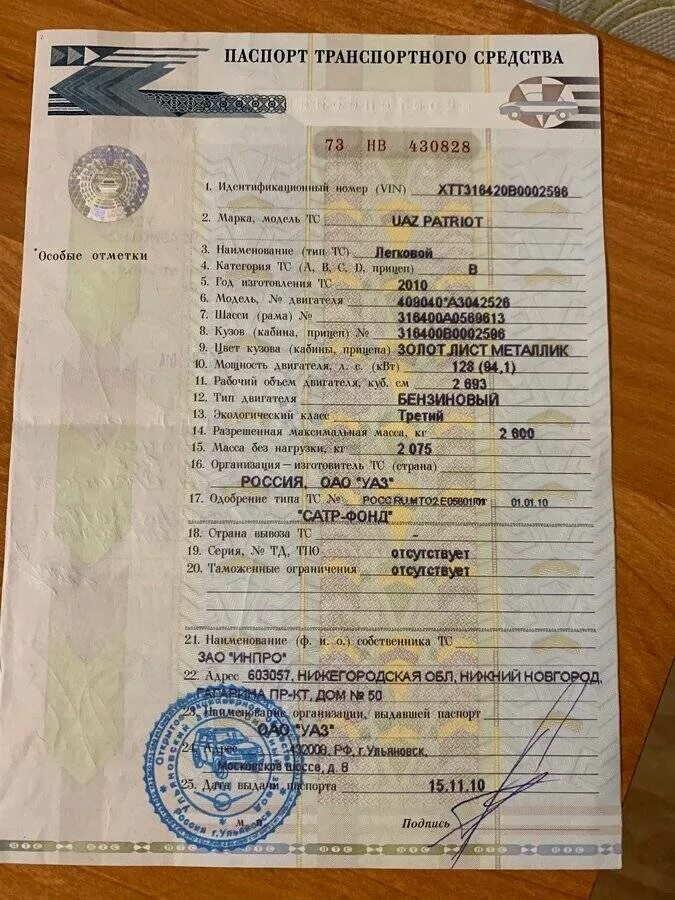 ПАСПОРТ ТРАНСПОРТНОГО СРЕДСТВА
73 НВ 430828
*Особые отметки
1. Идентификационный номер (VIN) XTT316420B0002596
2. Марка, модель ТС UAZ PATRIOT
3. Наименование (тип ТС) Легковой
4. Категория ТС (А, В, С, D, прицеп) В
5. Год изготовления ТС 2010
6. Модель, № двигателя 409040*A3042526
7. Шасси (рама) № 316400A0569613
8. Кузов (кабина, прицеп) № 316400B0002596
9. Цвет кузова (кабины, прицепа) ЗОЛОТ ЛИСТ МЕТАЛЛИК
10. Мощность двигателя, л. с. (кВт) 128 (94,1)
11. Рабочий объем двигателя, куб. см 2 693
12. Тип двигателя БЕНЗИНОВЫЙ
13. Экологический класс Третий
14. Разрешенная максимальная масса, кг 2 600
15. Масса без нагрузки, кг 2 075
16. Организация—изготовитель ТС (страна)
РОССИЯ, ОАО "УАЗ"
17. Одобрение типа ТС № 01.01.10
"САТР-ФОНД"
18. Страна вывоза ТС -
19. Серия, № ТД, ТПО отсутствует
20. Таможенные ограничения отсутствует
21. Наименование (ф. и. о.) собственника ТС
ЗАО "ИНПРО"
22. Адрес 603057, НИЖЕГОРОДСКАЯ ОБЛ, НИЖНИЙ НОВГОРОД,
ГАГАРИНА ПР-КТ, ДОМ № 50
23. Наименование организации, выдавшей паспорт
ОАО "УАЗ"
24. Адрес 432008, РФ, г.Ульяновск,
Московское шоссе, д. 8
25. Дата выдачи паспорта 15.11.10
М. п. Подпись
Россия г.Ульяновск